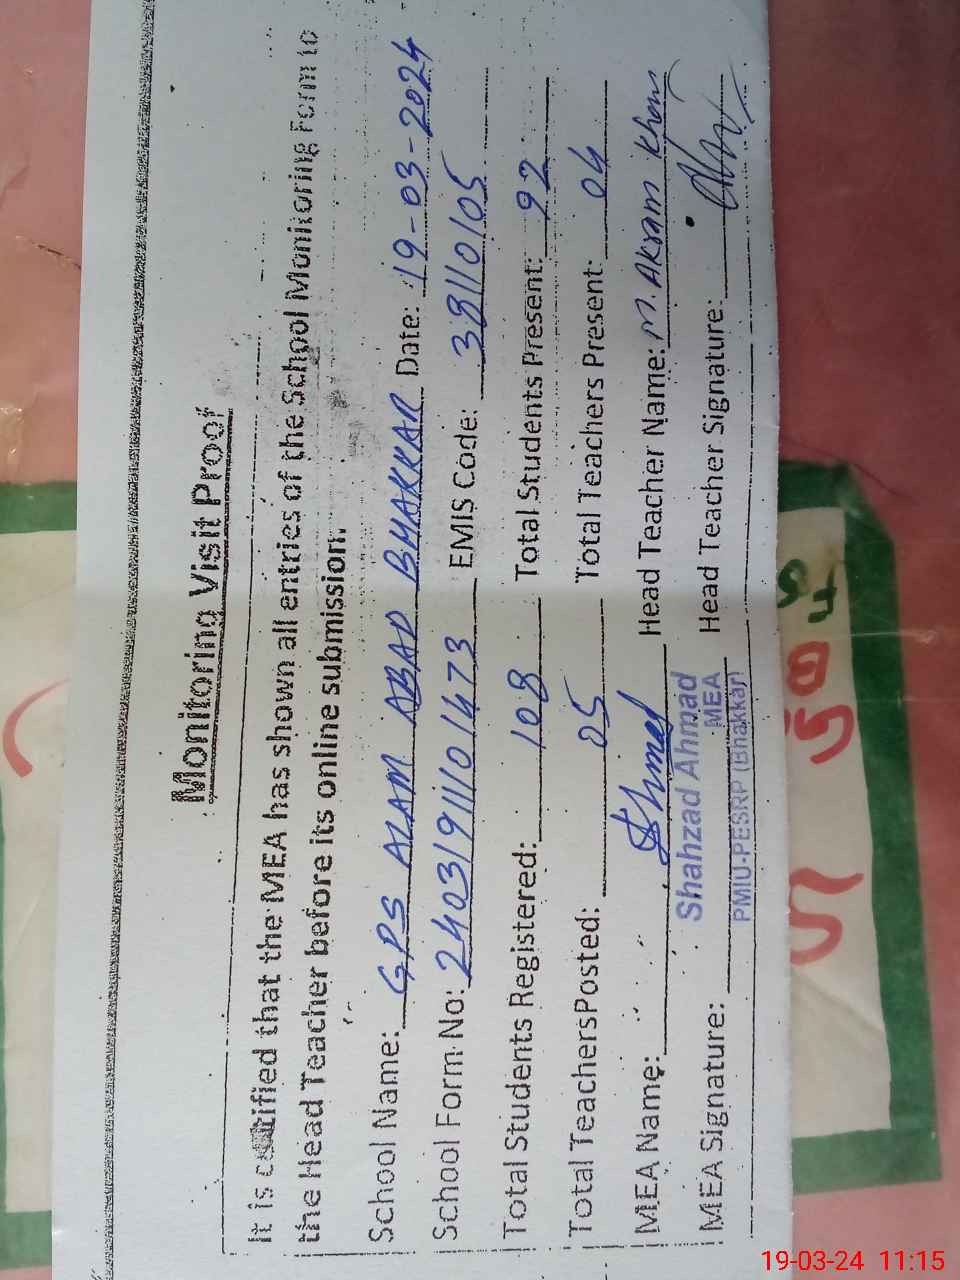 Monitoring Visit Proof
It is certified that the MEA has shown all entries of the School Monitoring Form to
the Head Teacher before its online submission.
School Name: GPS ALAM ABAD BHAKKAR Date: 19-03-2024
School Form No: 24031911101473 EMIS Code: 38110105
Total Students Registered: 108 Total Students Present: 92
Total TeachersPosted: 05 Total Teachers Present: 04
MEA Name: Head Teacher Name: M. Akram Khan
Shahzad Ahmad
MEA
MEA Signature: Head Teacher Signature:
PMIU-PESRP (Bhakkar)
19-03-24 11:15